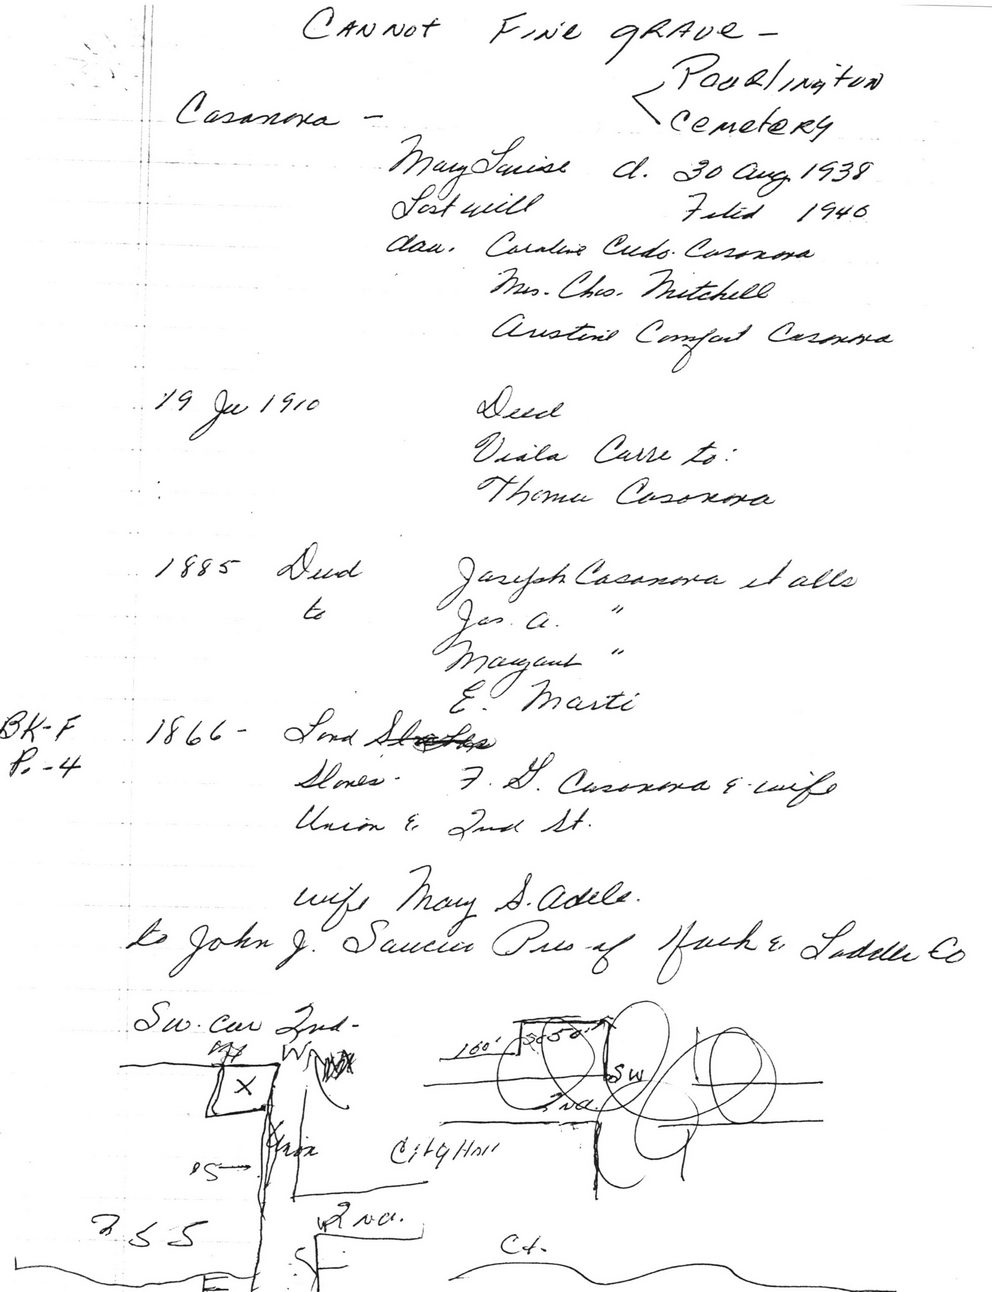 CANNOT FINE GRAVE -
PEARLINGTON
CEMETERY
Casanova -
Mary Louise d. 30 Aug. 1938
Last will Filed 1940
dau. Caroline Casanova
Mrs. Chas. Mitchell
Comfort Casanova
19 1910 Deed
Viola Carre to:
Thomas Casanova
1885 Deed Joseph Casanova et alls
to Jas. A. "
Margaret "
E. Marti
BK-F 1866 - Land
P.-4 Stores - F. G. Casanova & wife
Union & 2nd St.
wife Mary S. Adele.
to John J. Saucier Pres of Hook & Ladder Co
SW. Cor 2nd -
X
100'
50'
SW
2nd.
City Hall
2nd.
255
Ct.
E